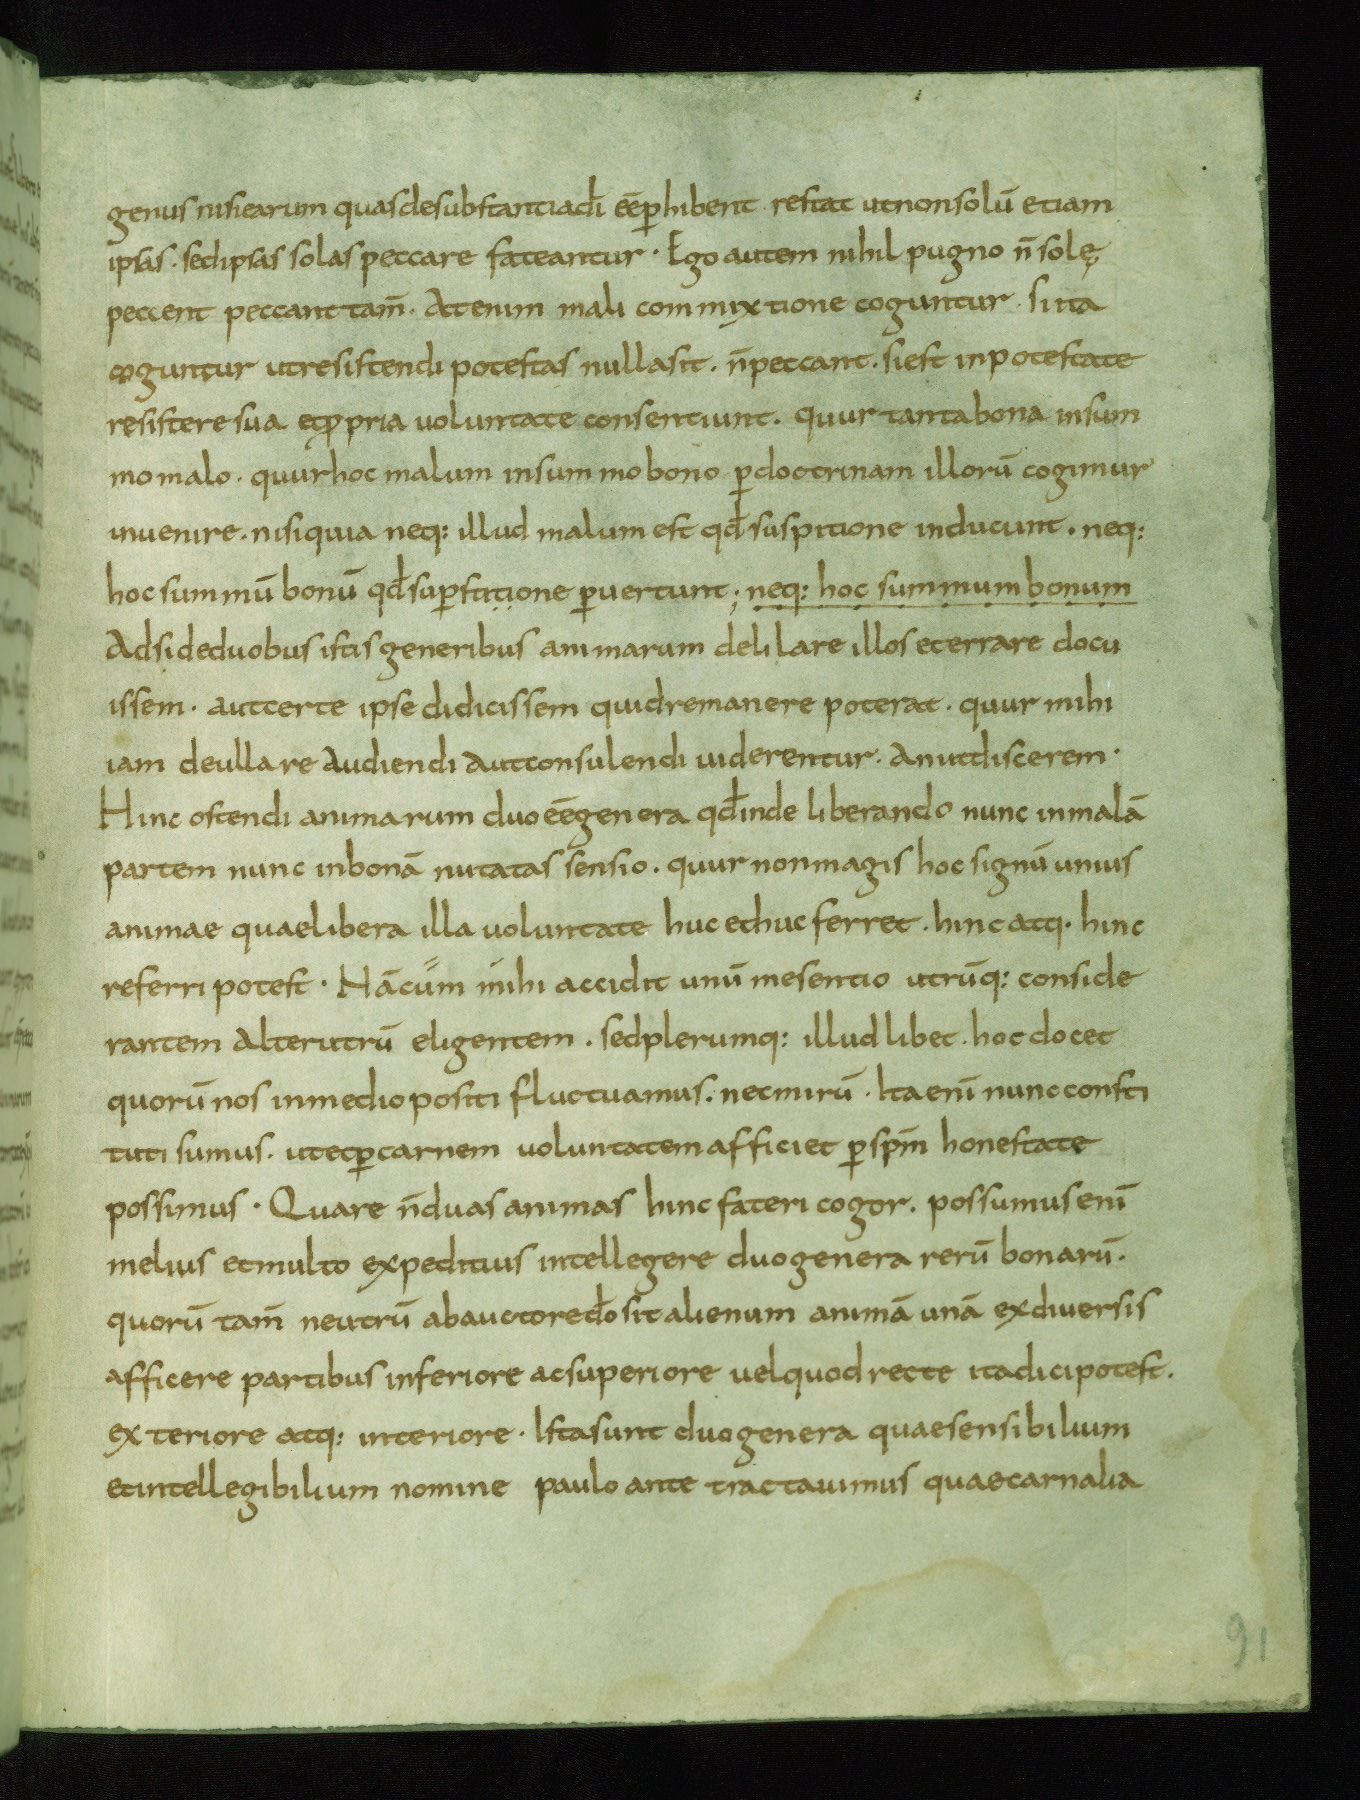 genus nisi earum quas de substantia dī eē ꝑhibent restat ut non solū etiam
ipsas · sed ipsas solas peccare fateantur · Ego autem nihil pugno n̄ solę
peccent peccant tam̄ · At enim mali commixtione coguntur · si ita
coguntur ut resistendi potestas nulla sit · n̄ peccant · si est in potestate
resistere sua et ꝓpria voluntate consentiunt · quur tanta bona in sum
mo malo · quur hoc malum in summo bono ꝑ doctrinam illorū cogimur
inuenire · nisi quia neq: illud malum est qđ suspitione inducunt · neq:
hoc summū bonū qđ suꝑstitione ꝑuertunt ; neq: hoc summum bonum
Ad si de duobus istis generibus animarum delilare illos et errare docu
issem · aut certe ipse didicissem quid remanere poterat · quur mihi
iam de ulla re audiendi aut consulendi uiderentur · An ut discerem ·
Hinc ostendi animarum duo eē genera qđ in deliberando nunc in malā
partem nunc in bonā nutatas sensio · quur non magis hoc signū unius
animae quae libera illa uoluntate huc et huc ferret · hinc atq· hinc
referri potest · Nā cūm mihi accidit unū me sentio utrūq: conside
rantem alterutrū eligentem · sed plerumq: illud libet · hoc docet
quorū nos in medio positi fluctuamus · nec mirū · Ita enī nunc consti
tuti sumus · ut et ꝑ carnem voluntatem afficiet ꝑ sp̄m honestate
possimus · Quare n̄ duas animas hinc fateri cogor · possumus enī
melius et multo expeditius intellegere duo genera rerū bonarū ·
quorū tam̄ neutrū ab auctore dō sit alienum animā unā ex diuersis
afficere partibus inferiore ac superiore uel quod recte ita dici potest ·
exteriore atq: interiore · Ista sunt duo genera quae sensibilium
et intellegibilium nomine paulo ante tractauimus quae carnalia
91